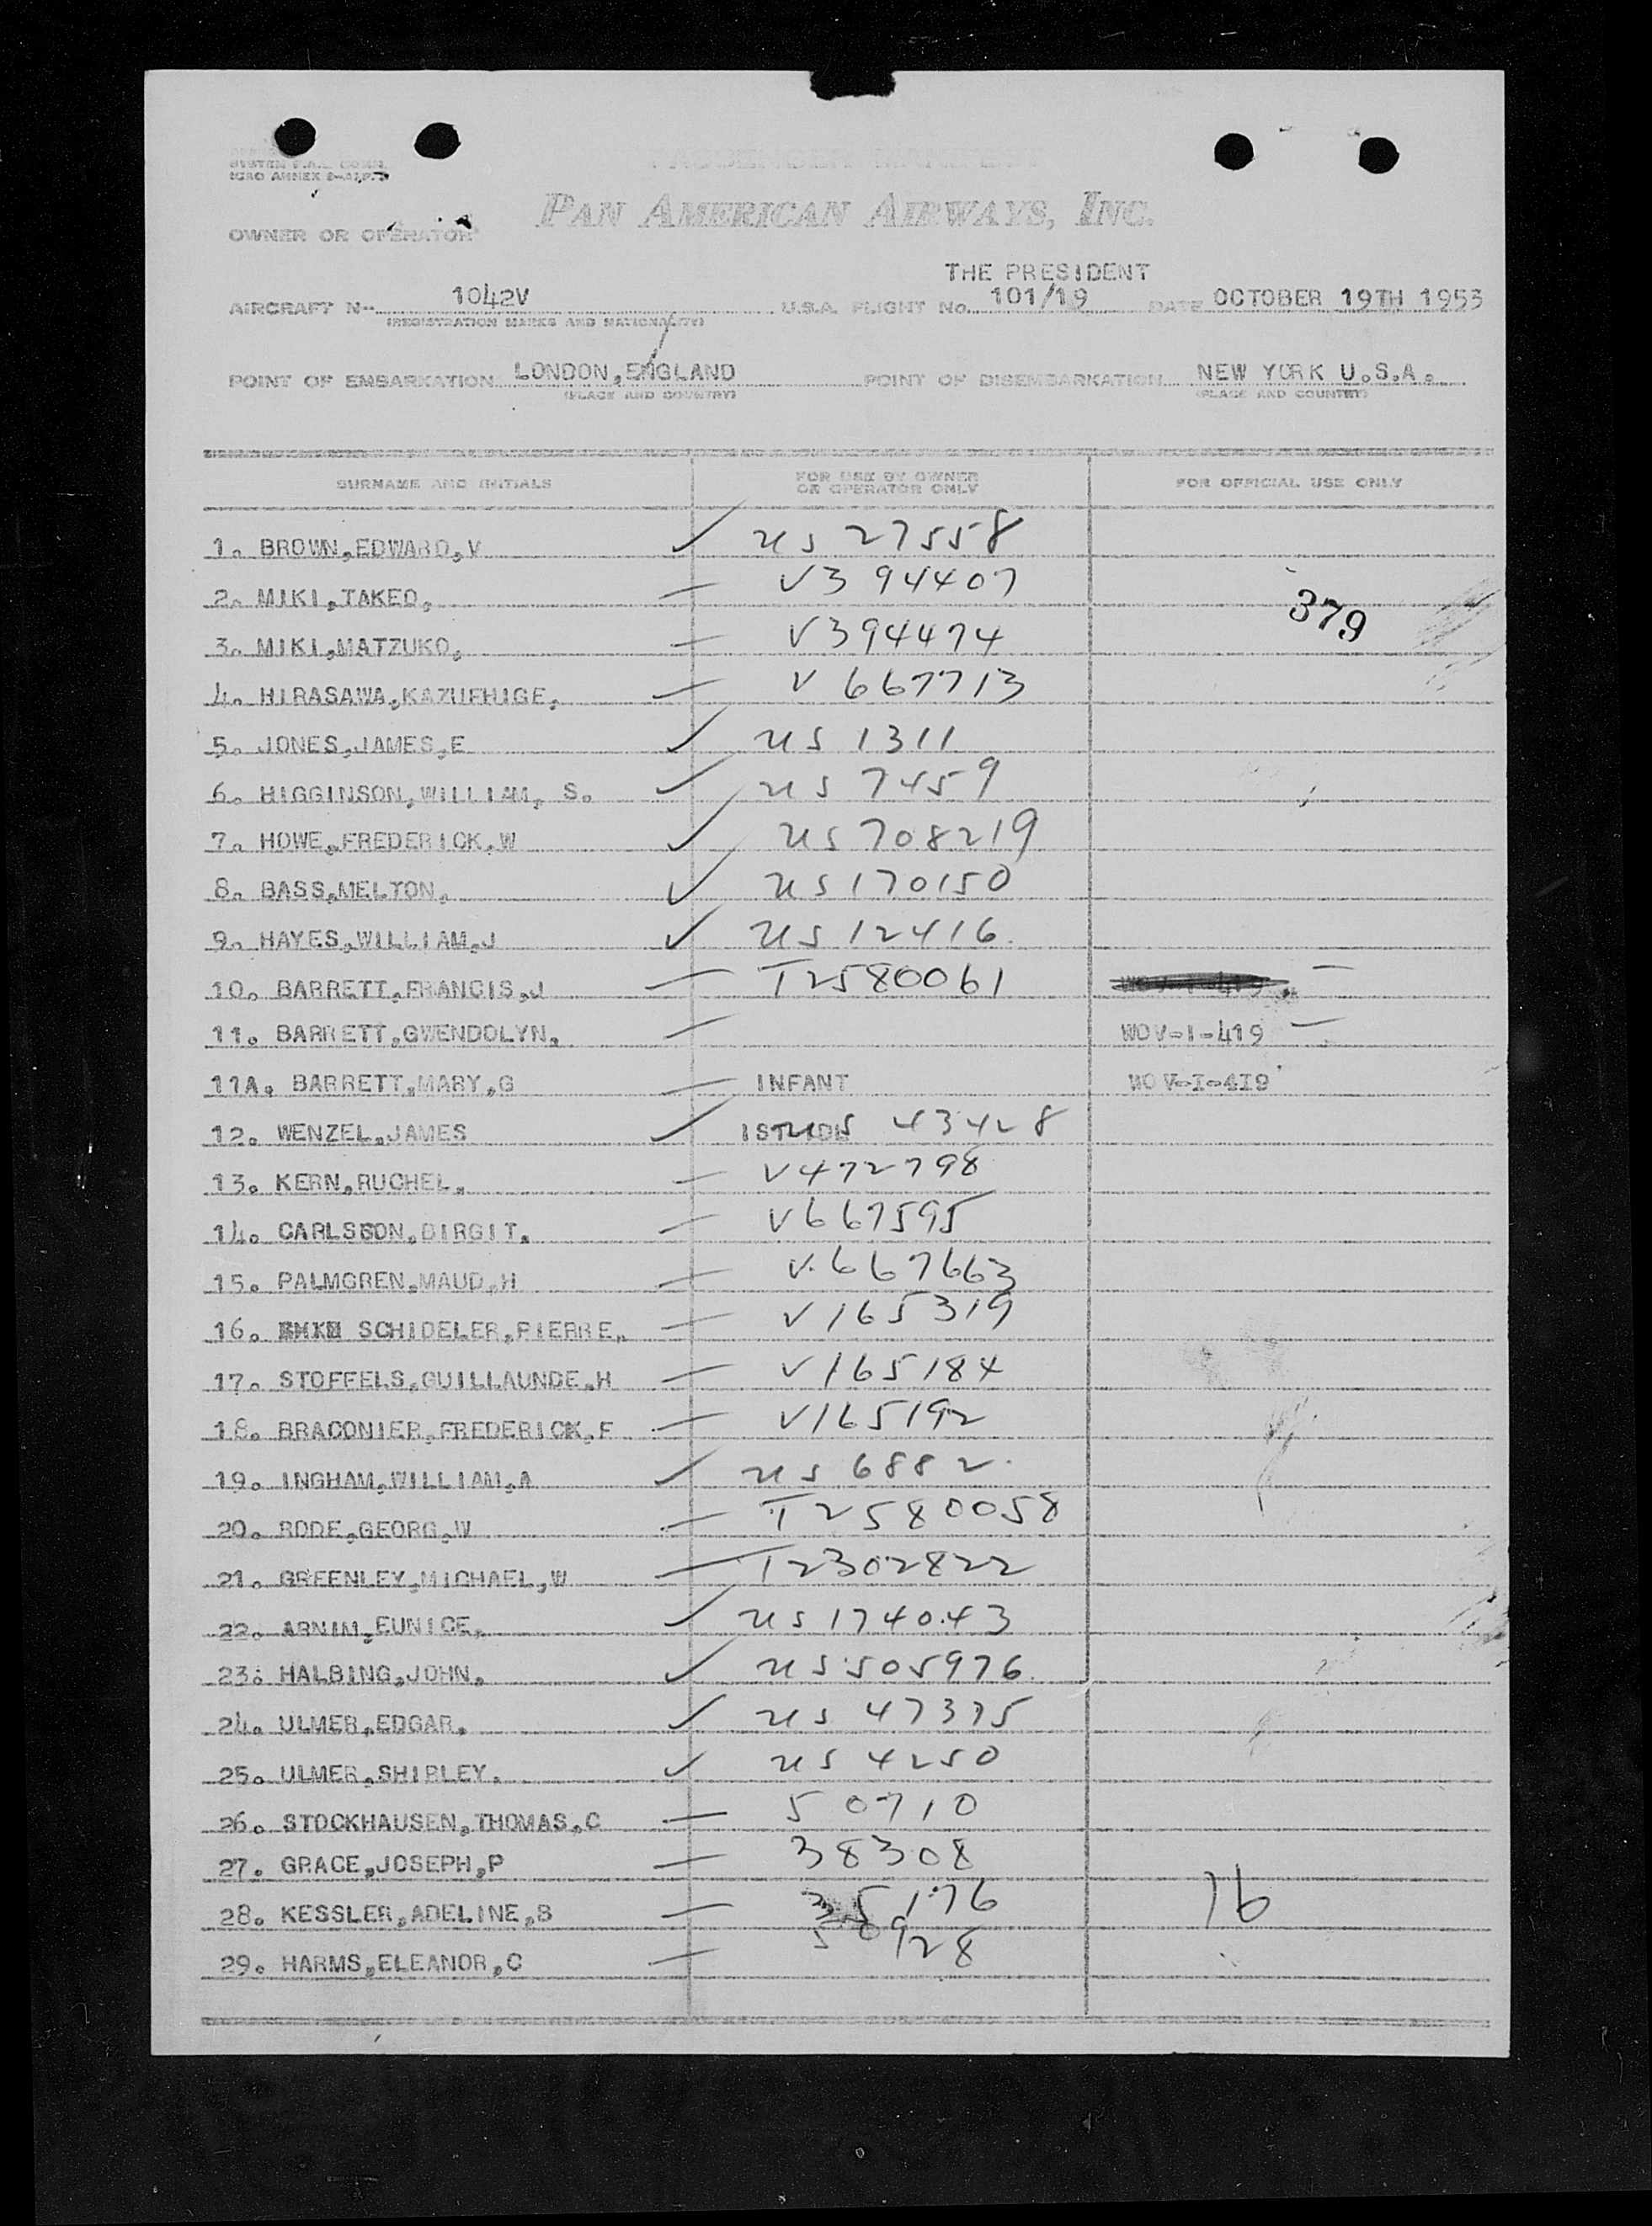 ICAO ANNEX 9-AP.3
PAN AMERICAN AIRWAYS, INC.
OWNER OR OPERATOR
THE PRESIDENT
AIRCRAFT No. 1042V U.S.A. FLIGHT No. 101/19 DATE OCTOBER 19TH 1953
(REGISTRATION MARKS AND NATIONALITY)
POINT OF EMBARKATION LONDON,ENGLAND POINT OF DISEMBARKATION NEW YORK U.S.A.
(PLACE AND COUNTRY) (PLACE AND COUNTRY)
SURNAME AND INITIALS FOR USE BY OWNER OR OPERATOR ONLY FOR OFFICIAL USE ONLY
1. BROWN,EDWARD,V ✓ US 27558
2. MIKI,TAKEO, — V394407
379
3. MIKI,MATZUKO, — V394474
4. HIRASAWA,KAZUFHIGE, — V 667713
5. JONES,JAMES,E ✓ US 1311
6. HIGGINSON,WILLIAM, S. ✓ US 7459
7. HOWE,FREDERICK,W ✓ US 708219
8. BASS,MELTON, ✓ US 170150
9. HAYES,WILLIAM,J ✓ US 12416
10. BARRETT,FRANCIS,J — T2580061 —
11. BARRETT,GWENDOLYN, — WOV-I-419 —
11A. BARRETT,MARY,G — INFANT WOV-I-419
12. WENZEL,JAMES ✓ US 43428
13. KERN,RUCHEL, — V472798
14. CARLSSON,BIRGIT, — V667595
15. PALMGREN,MAUD,H — V.667663
16. SCHIDELER,PIERRE, — V165319
17. STOFFELS,GUILLAUNDE,H — V165184
18. BRACONIER,FREDERICK,F — V165192
19. INGHAM,WILLIAM,A ✓ US 6882
20. RODE,GEORG,W — T2580058
21. GREENLEY,MICHAEL,W — T2302822
22. ARNIM,EUNICE, ✓ US 174043
23. HALBING,JOHN, ✓ US 505976
24. ULMER,EDGAR, ✓ US 47375
25. ULMER,SHIRLEY, ✓ US 4250
26. STOCKHAUSEN,THOMAS,C — 50710
27. GRACE,JOSEPH,P — 38308
28. KESSLER,ADELINE,B — 35176 16
29. HARMS,ELEANOR,C — 50928